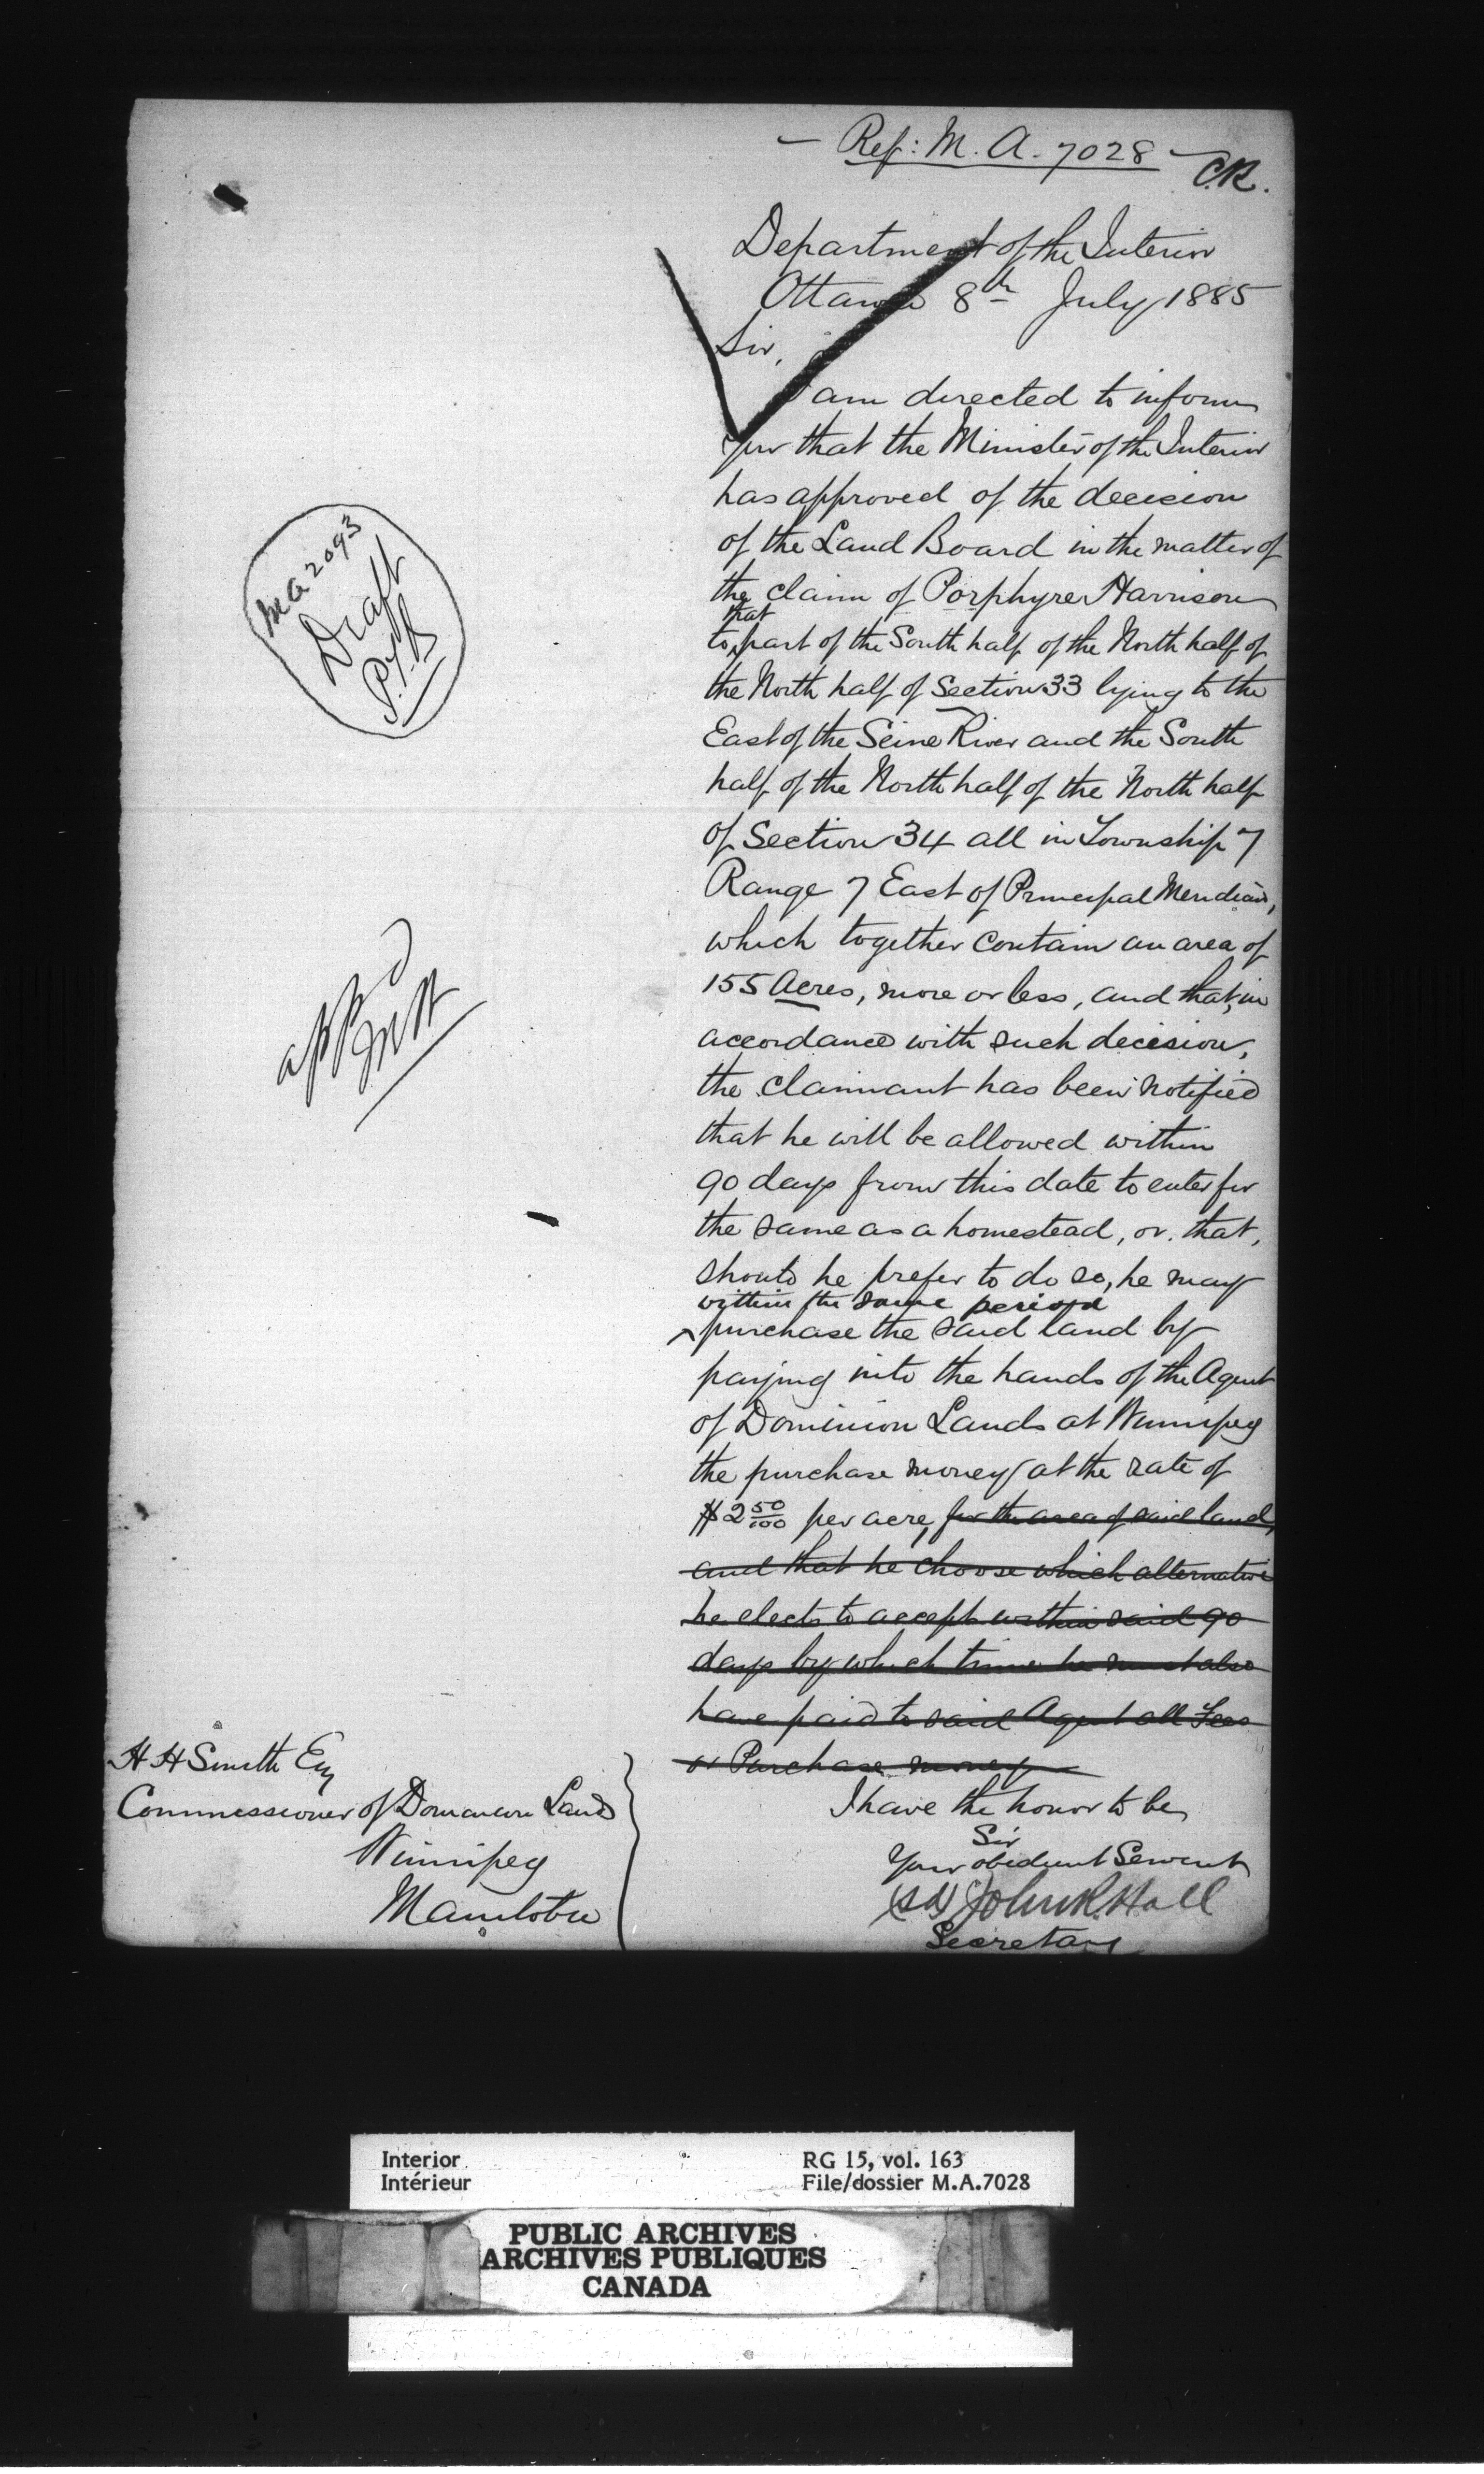 — Ref: M. A. 7028 —
C.R.
Department of the Interior
Ottawa 8th July 1885
Sir,
I am directed to inform
you that the Minister of the Interior
has approved of the decision
of the Land Board in the matter of
the claim of Porphyre Harrison
that
to part of the South half of the North half of
the North half of Section 33 lying to the
East of the Seine River and the South
half of the North half of the North half
of Section 34 all in Township 7
Range 7 East of Principal Meridian,
which together contain an area of
155 Acres, more or less, and that, in
accordance with such decision,
the claimant has been notified
that he will be allowed within
90 days from this date to enter for
the same as a homestead, or that,
should he prefer to do so, he may
within the same period
purchase the said land by
paying into the hands of the Agent
of Dominion Lands at Winnipeg
the purchase money at the rate of
$2 50/100 per acre, for the area of said land,
and that he choose which alternative
he elects to accept within said 90
days by which time he must also
have paid to said Agent all Fees
or Purchase money
I have the honor to be
Sir
Your obedient Servant
(Sd) John R. Hall
Secretary
M A 2093
Draft
appd
H H Smith Esq
Commissioner of Dominion Lands
Winnipeg
Manitoba
Interior
Intérieur
RG 15, vol. 163
File/dossier M.A.7028
PUBLIC ARCHIVES
ARCHIVES PUBLIQUES
CANADA